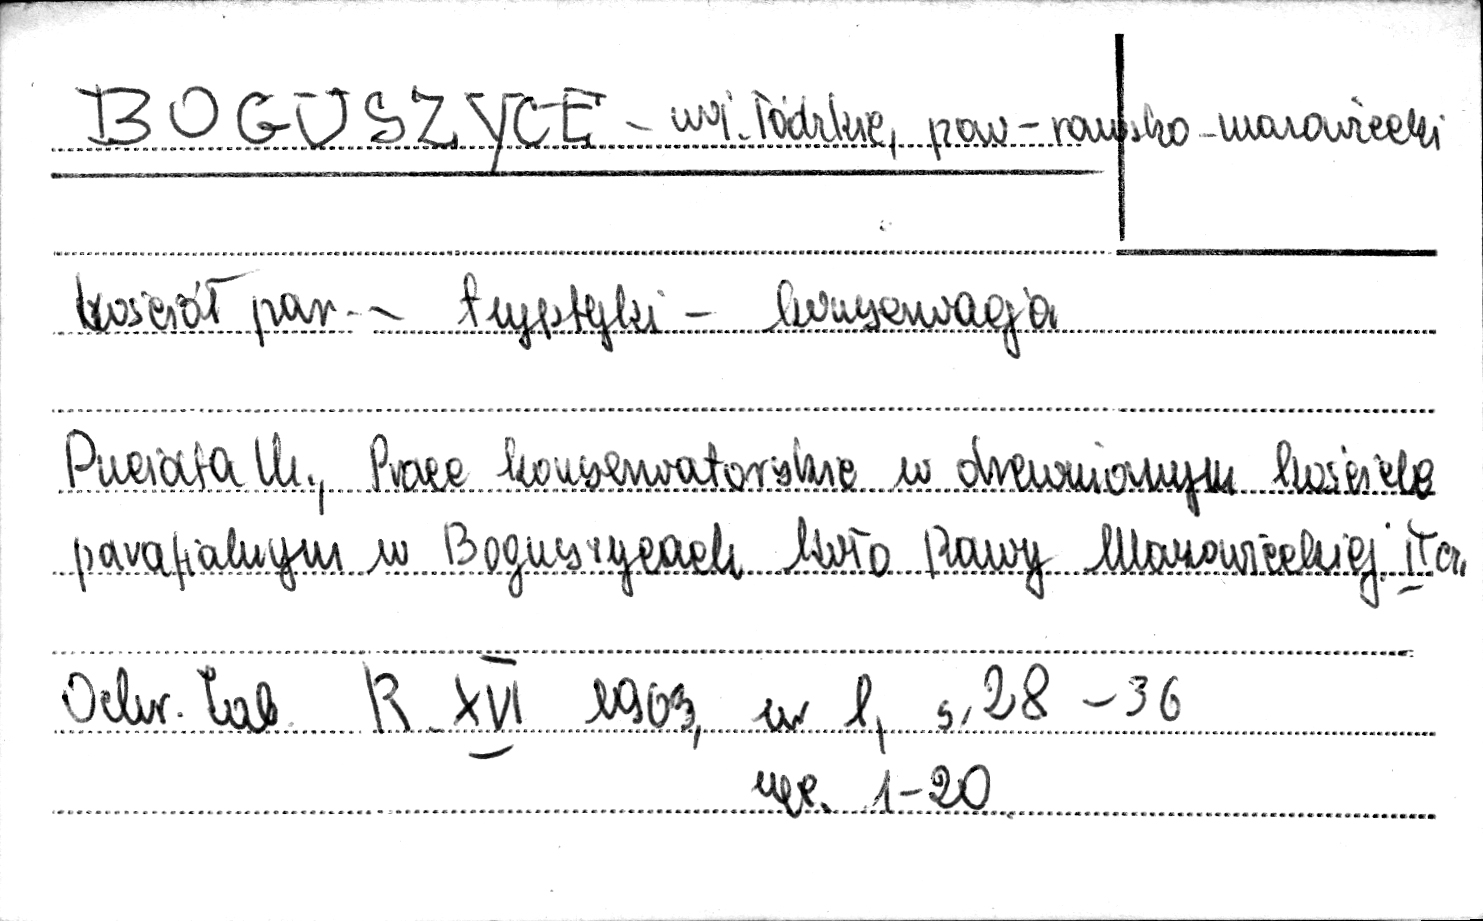 BOGUSZYCE - woj. łódzkie, pow - rawsko - mazowiecki
kościół par. - tryptyki - konserwacja
Puciata M., Prace konserwatorskie w drewnianym kościele
parafialnym w Boguszycach koło Rawy Mazowieckiej. II cz.
Ochr. Zab. R. XVI 1963, nr 1, s. 28 - 36
ryc. 1-20